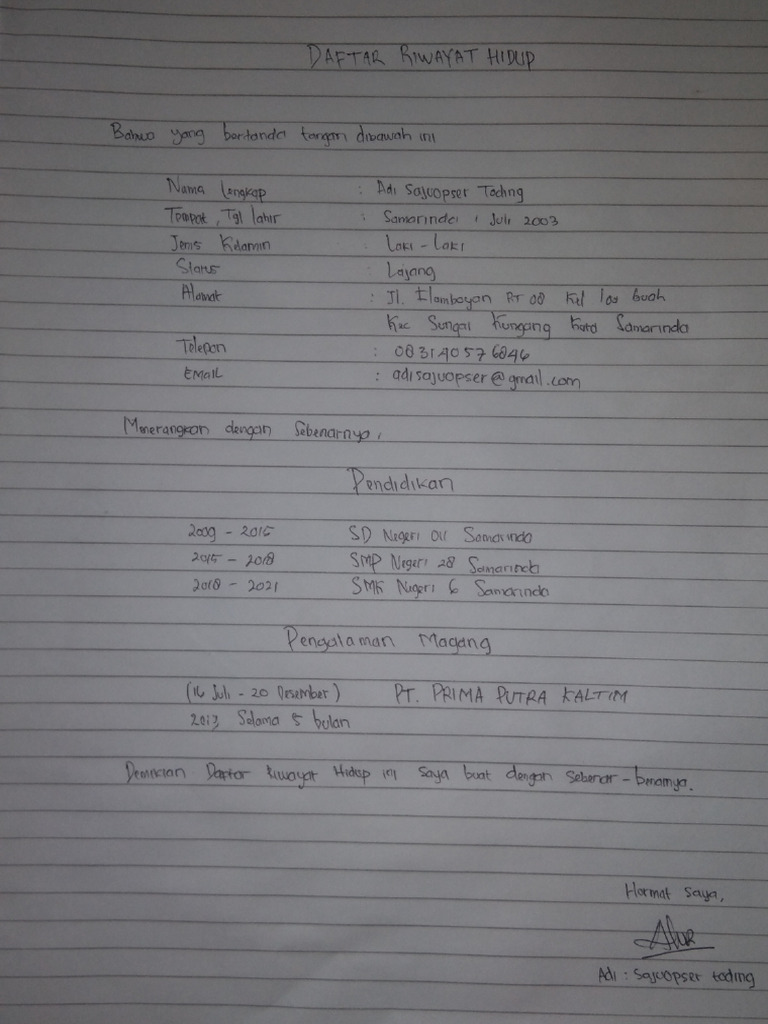 DAFTAR RIWAYAT HIDUP
Bahwa yang bertanda tangan dibawah ini
Nama Lengkap : Adi Sajuopser Toding
Tempat, Tgl lahir : Samarinda, 1 Juli 2003
Jenis Kelamin : Laki - Laki
Status : Lajang
Alamat : Jl. Flamboyan RT 08 Kel loa buah
Kec Sungai Kunjang Kota Samarinda
Telepon : 083140576846
EMAIL : adisajuopser@gmail.com
Menerangkan dengan Sebenarnya,
Pendidikan
2009 - 2015 SD Negeri 011 Samarinda
2015 - 2018 SMP Negeri 28 Samarinda
2018 - 2021 SMK Negeri 6 Samarinda
Pengalaman Magang
(16 Juli - 20 Desember) PT. PRIMA PUTRA KALTIM
2013 Selama 5 bulan
Demikian Daftar Riwayat Hidup ini Saya buat dengan Sebenar - benarnya.
Hormat saya,
Adi : Sajuopser toding